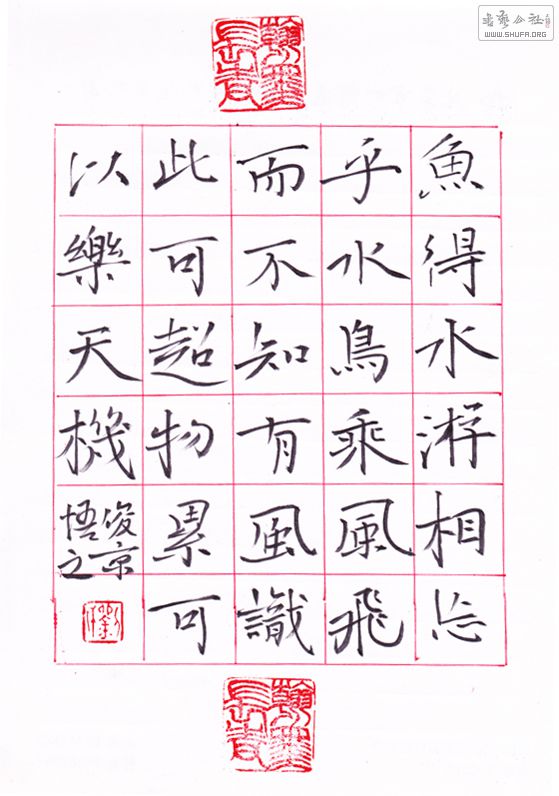 書藝公社
WWW.SHUFA.ORG
魚得水游相忘
乎水鳥乘風飛
而不知有風識
此可超物累可
以樂天機
俊京
悟之